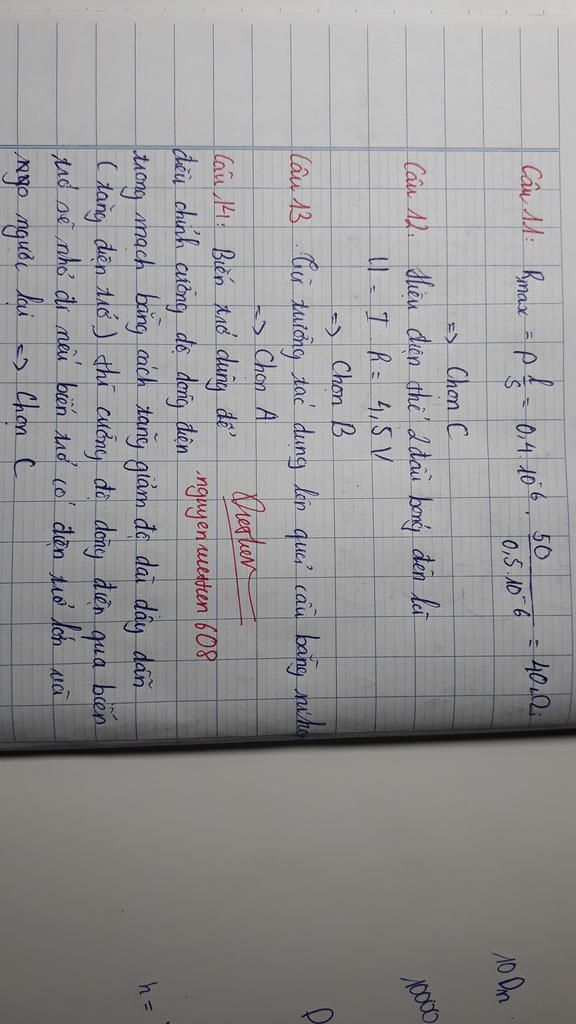 Câu 11: Rmax = ρ l/S = 0,4.10^-6 . 50/0,5.10^-6 = 40Ω
=> Chọn C
Câu 12: Hiệu điện thế 2 đầu bóng đèn là
U = I . R = 4,5 V
=> Chọn B
Câu 13. Từ trường tác dụng lên quả cầu bằng
=> Chọn A
Câu 14: Biến trở dùng để
điều chỉnh cường độ dòng điện
trong mạch bằng cách tăng giảm độ dài dây dẫn
(tăng điện trở) thì cường độ dòng điện qua biến
trở sẽ nhỏ đi nếu biến trở có điện trở lớn và
người lại => Chọn C
nguyenviettien608
10Dm
10000
D
h =